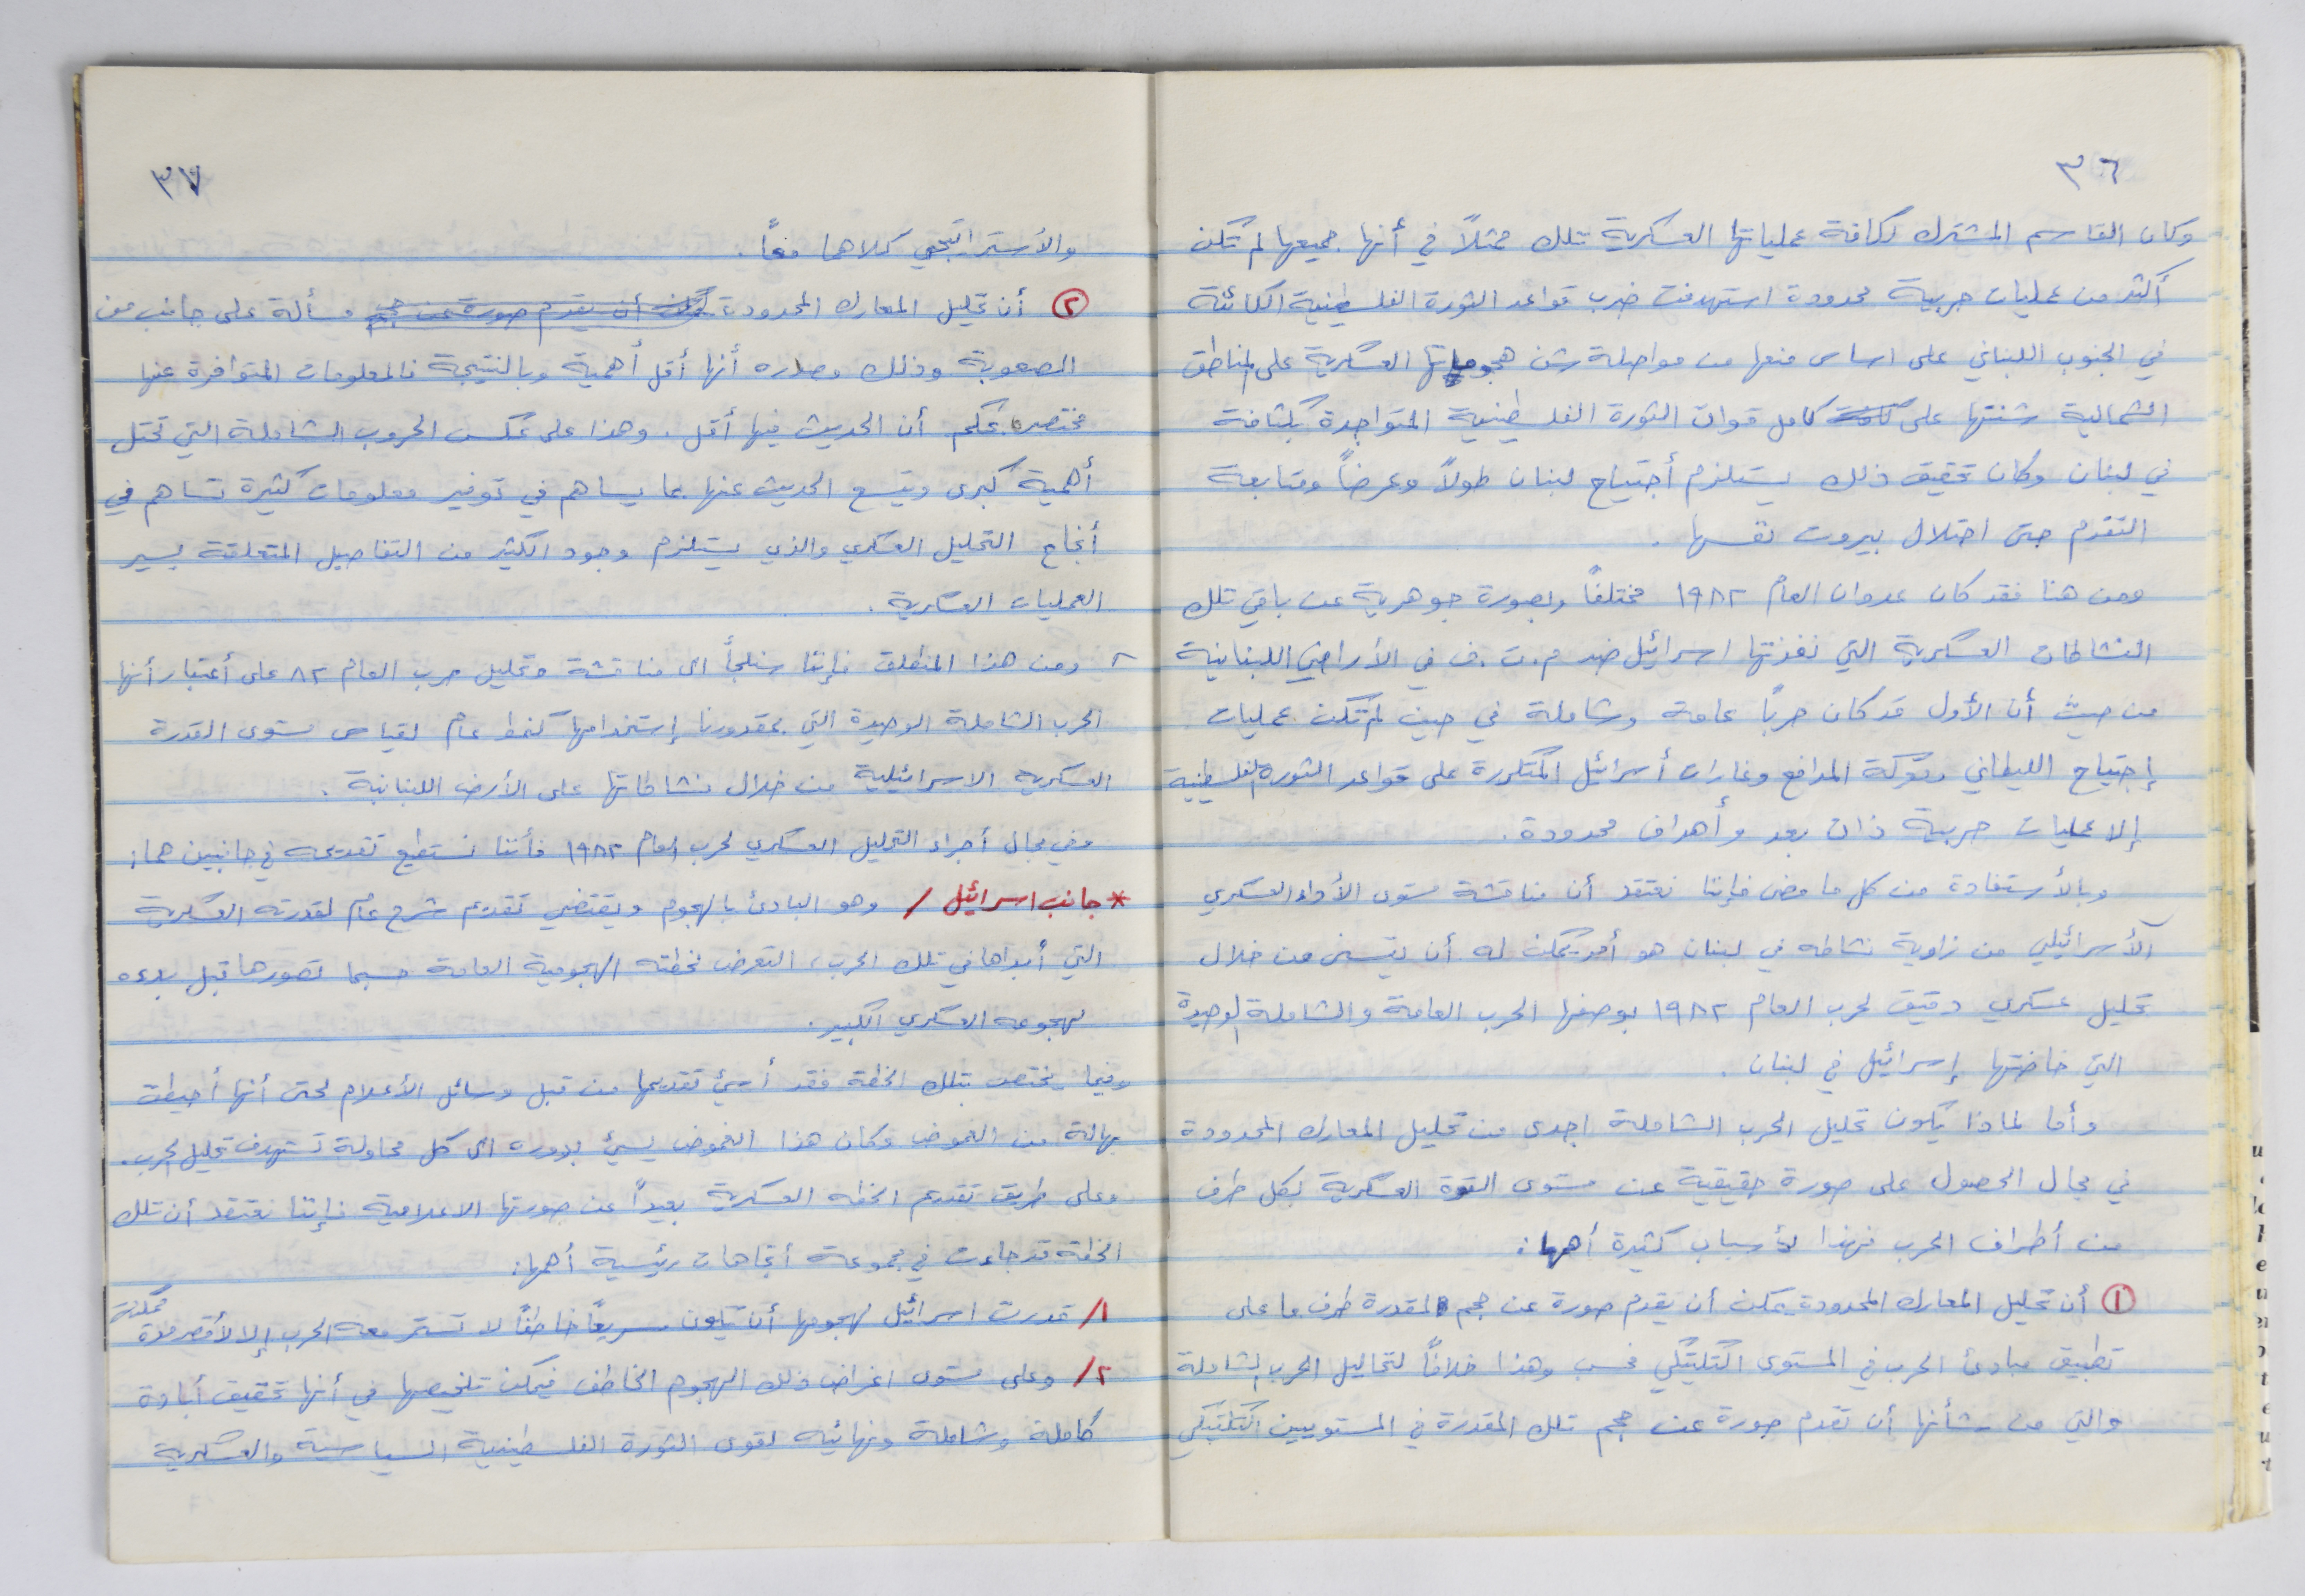 ٣٦
وكان القاسم المشترك لكافة عملياتها العسكرية تلك ممثلاً في أنها جميعها لم تكن
أكثر من عمليات حربية محدودة استهدفت ضرب قواعد الثورة الفلسطينية الكائنة
في الجنوب اللبناني على اساس منعها من مواصلة شن هجوماتها العسكرية على المناطق
الشمالية شنتها على كامل قوات الثورة الفلسطينية المتواجدة بكثافة
في لبنان وكان تحقيق ذلك يستلزم أجتياح لبنان طولاً وعرضاً ومتابعة
التقدم حتى احتلال بيروت نفسها .
ومن هنا فقد كان عدوان العام ١٩٨٢ مختلفاً وبصورة جوهرية عن باقي تلك
النشاطات العسكرية التي نفذتها اسرائيل ضد م.ت.ف في الأراضي اللبنانية
من حيث أن الأول قد كان حرباً عامة وشاملة في حين لم تكن عمليات
إجتياح الليطاني ومعركة المدافع وغارات أسرائيل المتكررة على قواعد الثورة الفلسطينية
إلا عمليات حربية ذات بعد وأهداف محدودة .
وبالأستفادة من كل ما مضى فإننا نعتقد أن مناقشة مستوى الأداء العسكري
الأسرائيلي من زاوية نشاطه في لبنان هو أمر يمكن له أن يتسنى من خلال
تحليل عسكري دقيق لحرب العام ١٩٨٢ بوصفها الحرب العامة والشاملة الوحيدة
التي خاضتها إسرائيل في لبنان .
وأما لماذا يكون تحليل الحرب الشاملة اجدى من تحليل المعارك المحدودة
في مجال الحصول على صورة حقيقية عن مستوى القوة العسكرية لكل طرف
من أطراف الحرب فهذا لأسباب كثيرة أهمها :
① أن تحليل المعارك المحدودة يمكن أن يقدم صورة عن حجم المقدرة طرف ما على
تطبيق مبادئ الحرب في المستوى التكتيكي فحسب وهذا خلافاً لتحاليل الحرب الشاملة
والتي من شأنها أن تقدم صورة عن حجم تلك المقدرة في المستويين التكتيكي
٣٧
والأستراتيجي كلاهما معاً .
② أن تحليل المعارك المحدودة يمكن أن يقدم صورة عن حجم مسألة على جانب من
الصعوبة وذلك مصدره أنها أقل أهمية وبالنتيجة فالمعلومات المتوافرة عنها
مختصرة بحكم أن الحديث فيها أقل . وهذا على عكس الحروب الشاملة التي تحتل
أهمية كبرى ويتسع الحديث عنها بما يساهم في توفير معلومات كثيرة تساهم في
أنجاح التحليل العسكري والذي يستلزم وجود الكثير من التفاصيل المتعلقة بسير
العمليات العسكرية .
ومن هذا المنطلق فإننا سنلجأ الى مناقشة وتحليل حرب العام ٨٢ على أعتبار أنها
الحرب الشاملة الوحيدة التي بمقدورنا إستخدامها كنمط عام لقياس مستوى القدرة
العسكرية الاسرائيلية من خلال نشاطاتها على الأرض اللبنانية .
وفي مجال أجراء التحليل العسكري لحرب العام ١٩٨٢ فأننا نستطيع تقديمه في جانبين هما :
* جانب اسرائيل / وهو البادئ بالهجوم ويقتضي تقديم شرح عام لقدرته العسكرية
التي أبداها في تلك الحرب ، التعرض لخطته الهجومية العامة حسبما تصورها قبل بدءه
لهجومه العسكري الكبير .
وفيما يختص بتلك الخطة فقد أسئ تقديمها من قبل وسائل الأعلام لحتى أنها أحيطت
بهالة من الغموض وكان هذا الغموض يسئ بدوره الى كل محاولة تستهدف تحليل الحرب .
وعلى طريق تقديم الخطه العسكرية بعيداً عن صورتها الاعلامية فإننا نعتقد أن تلك
الخطة قد جاءت في مجموعة أتجاهات رئيسية أهمها :
١/ قدرت اسرائيل لهجومها أن يكون سريعاً خاطفاً لا تستمر معه الحرب إلا لأقصر مدة ممكنة
٢/ وعلى مستوى اغراض ذلك الهجوم الخاطف فيمكن تلخيصها في أنها تحقيق أبادة
كاملة وشاملة ونهائيه لقوى الثورة الفلسطينية السياسية والعسكرية